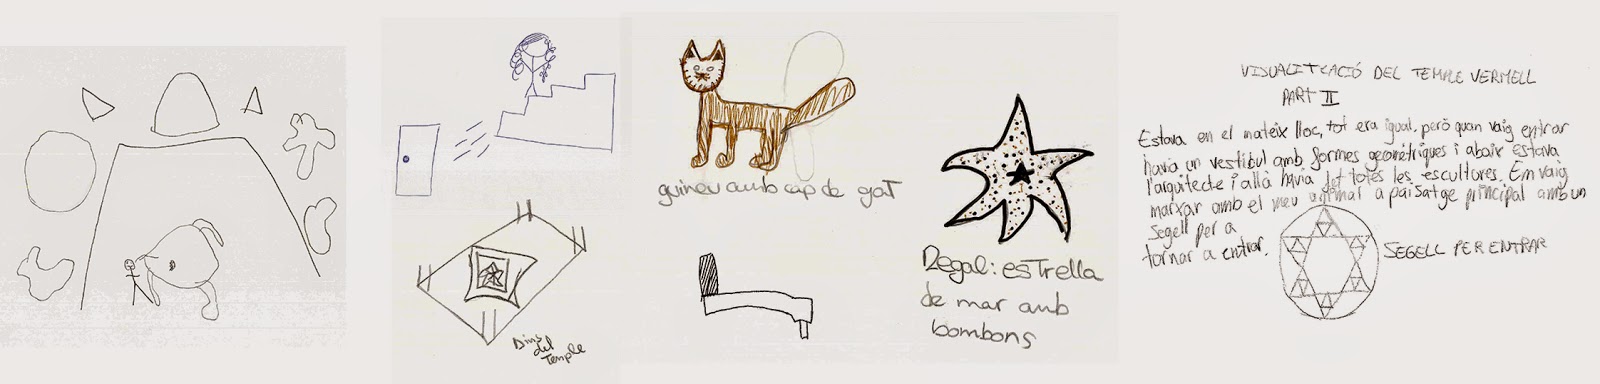 Dins
del
Temple
guineu amb cap de gat
Regal: esTrella
de mar amb
bombons
VISUALITZACIÓ DEL TEMPLE VERMELL
PART II
Estava en el mateix lloc, tot era igual, però quan vaig entrar
havia un vestíbul amb formes geomètriques i abaix estava
l'arquitecte i allà havia fet totes les escultures. Em vaig
marxar amb el meu animal a paisatge principal amb un
segell per a
tornar a entrar.
SEGELL PER ENTRAR